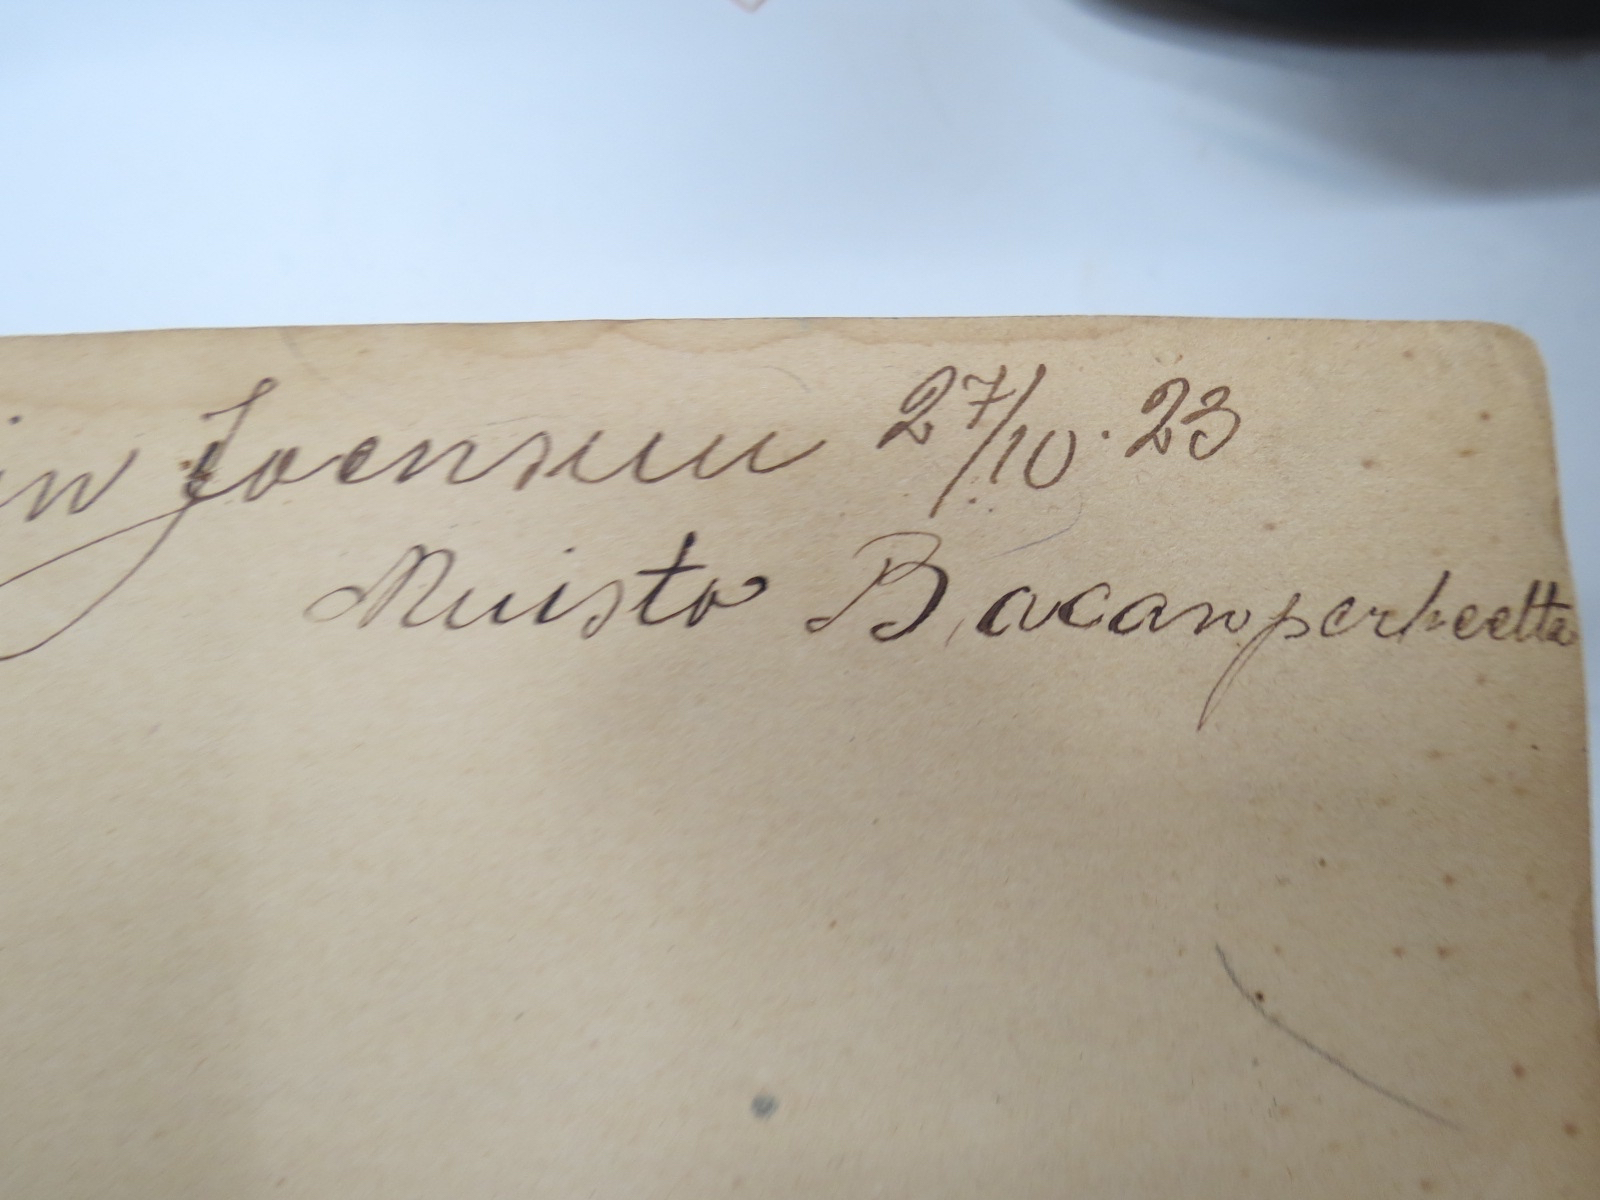 in Joensuu 27/10. 23
Muisto Bacanperheeltä